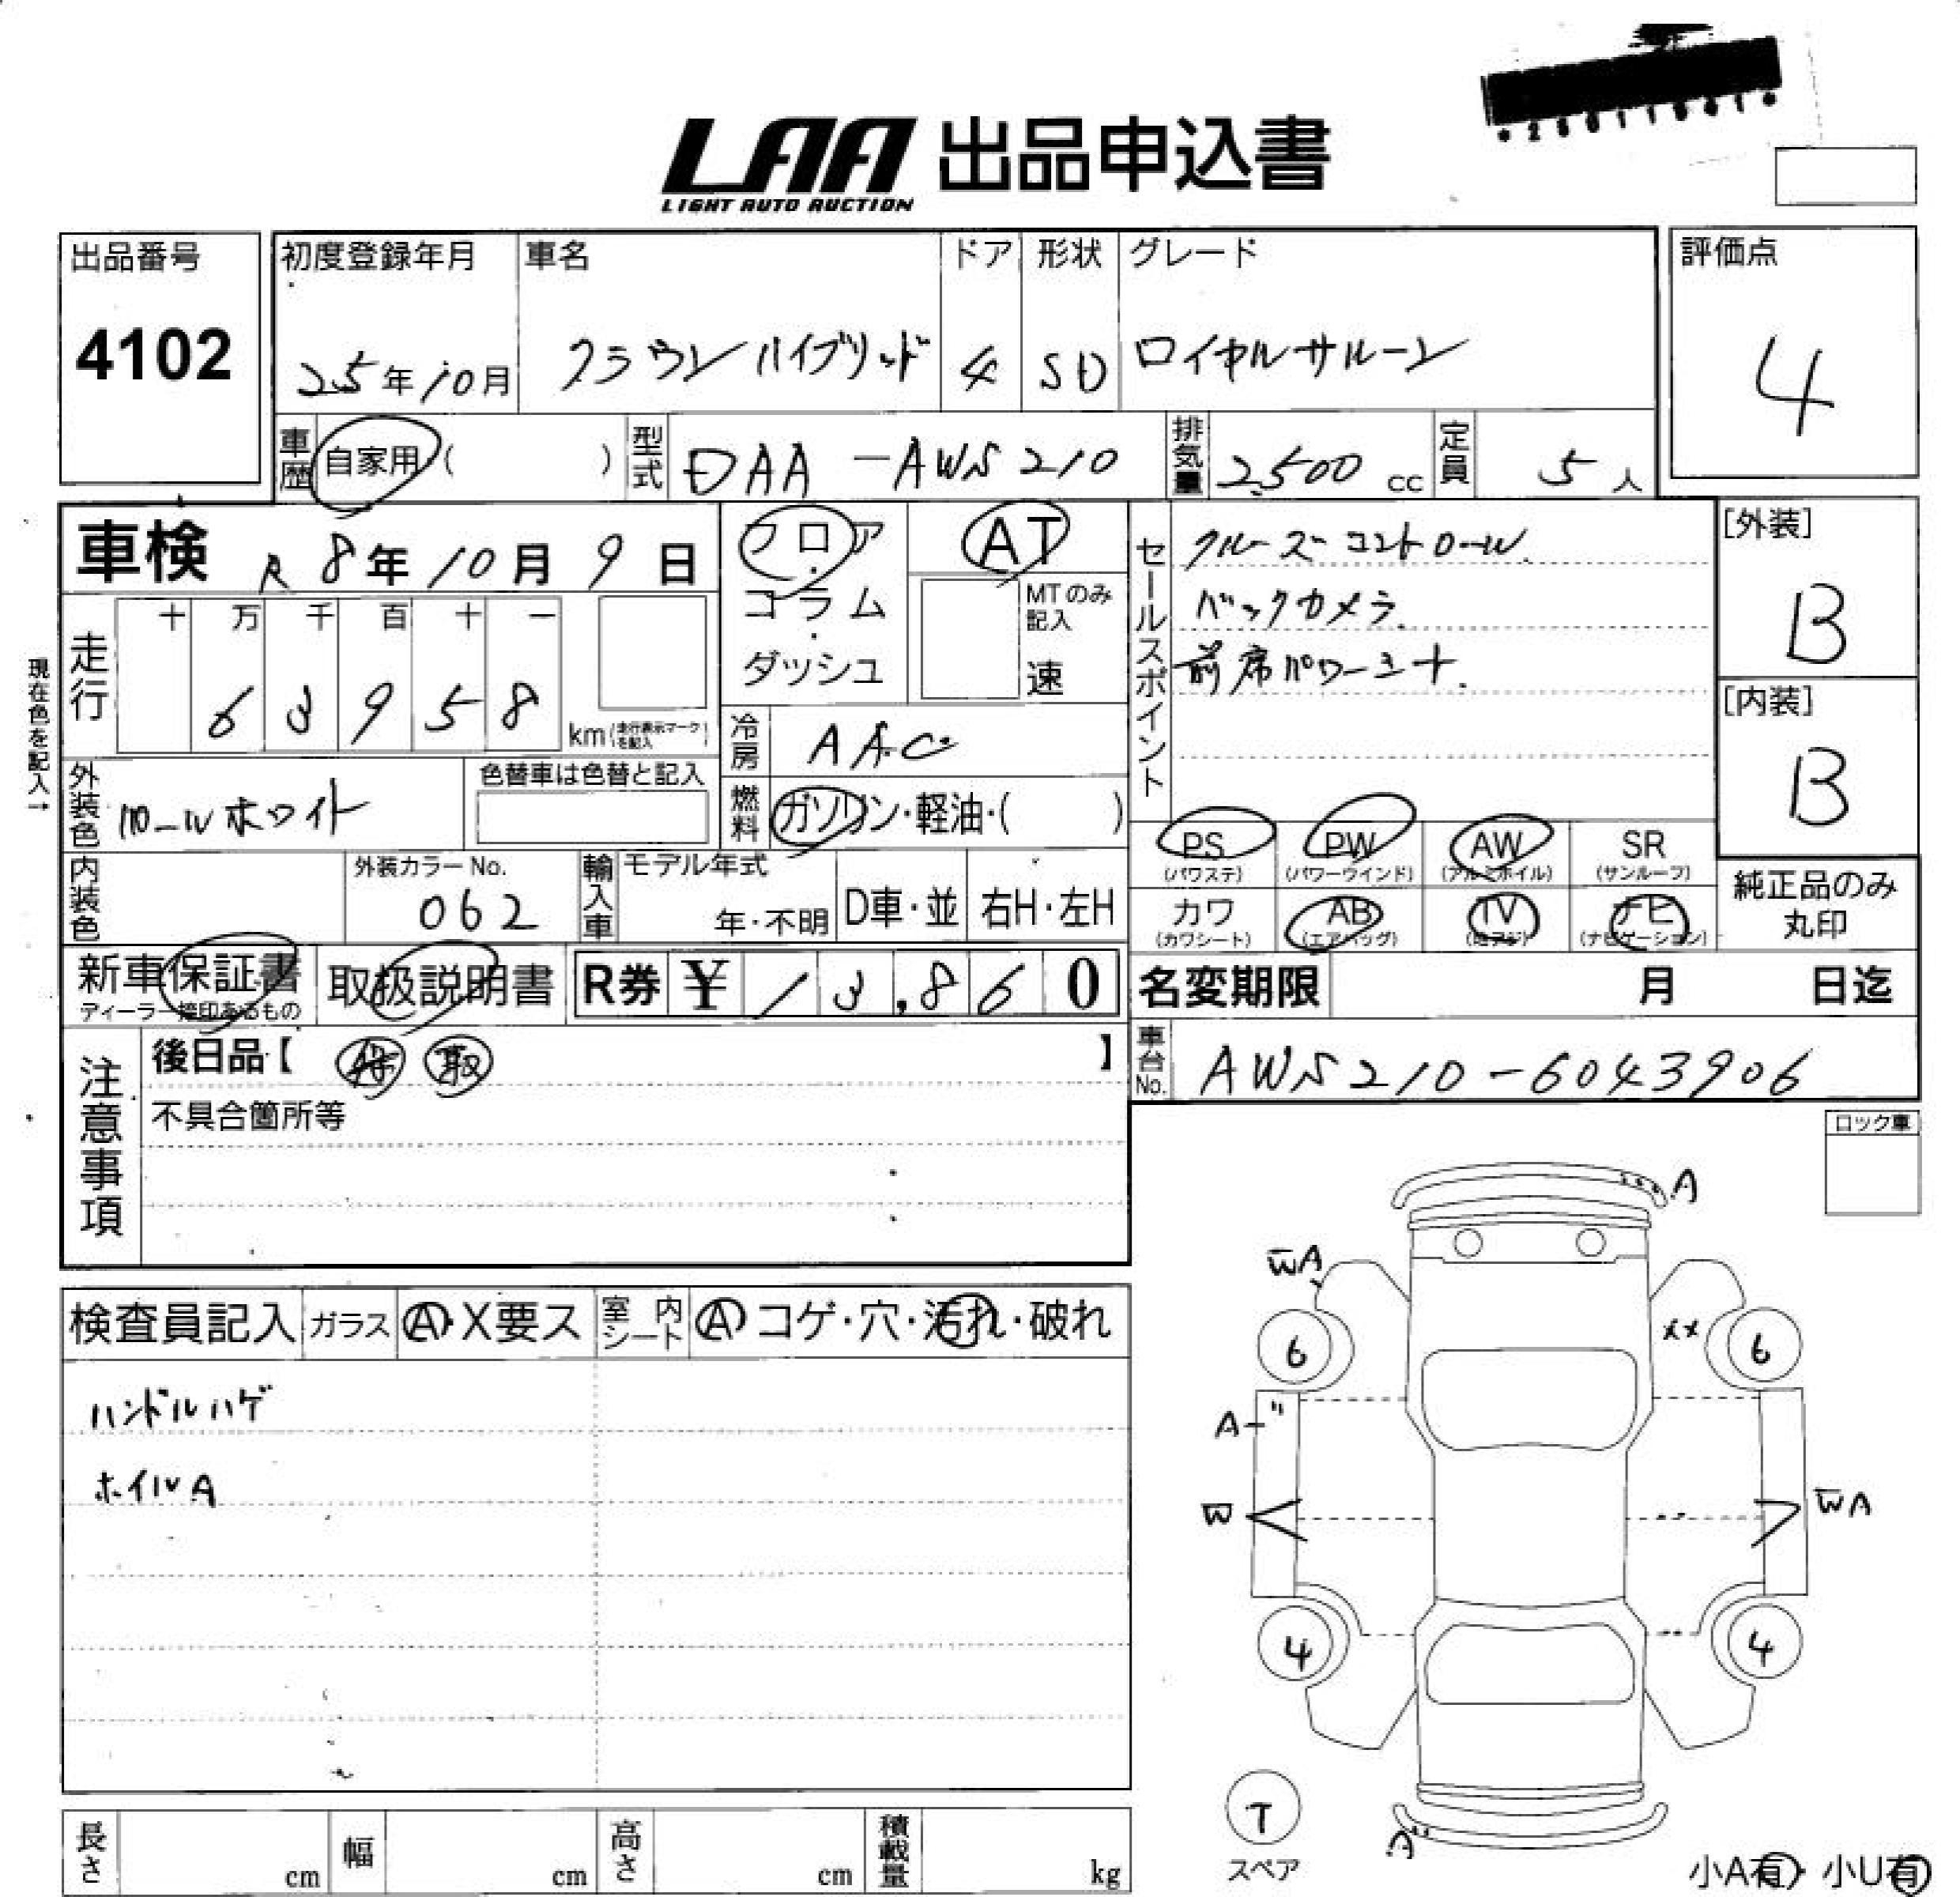 LAA 出品申込書
LIGHT AUTO AUCTION
出品番号
4102
初度登録年月
25年10月
車名
クラウンハイブリッド
ドア
4
形状
SD
グレード
ロイヤルサルーン
評価点
4
車歴
自家用 ( )
型式
DAA-AWS210
排気量
2,500 cc
定員
5人
車検 R8年10月9日
フロア
・
コラム
・
ダッシュ
AT
MTのみ
記入
速
セールスポイント
クルーズコントロール.
バックカメラ.
前席パワーシート.
[外装]
B
[内装]
B
現在色を記入→
走行
十 万 千 百 十 一
6 3 9 5 8
km (走行表示マークを記入)
冷房
AAC
外装色
パールホワイト
色替車は色替と記入
燃料
ガソリン・軽油・( )
PS
(パワステ)
PW
(パワーウインド)
AW
(アルミホイル)
SR
(サンルーフ)
内装色
外装カラーNo.
062
輸入車
モデル年式
年・不明
D車・並
右H・左H
カワ
(カワシート)
AB
(エアバッグ)
TV
(地デジ)
ナビ
(ナビゲーション)
純正品のみ
丸印
新車保証書
ディーラー捺印あるもの
取扱説明書
R券 ¥13,860
名変期限 月 日迄
注意事項
後日品【 保 取 】
車台No.
AWS210-6043906
不具合箇所等
ロック車
A
WA
6
××
6
A-"
W
WA
4
4
T
スペア
A
小A有・小U有
検査員記入
ガラス
A・X要ス
室内シート
A コゲ・穴・汚れ・破れ
ハンドルハゲ
ホイルA
長さ cm
幅 cm
高さ cm
積載量 kg